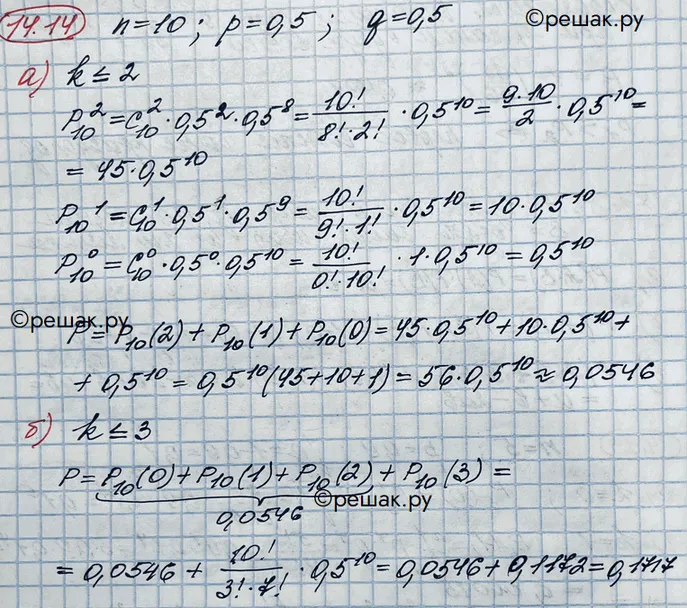 14.14 n=10; p=0,5; q=0,5 ©решак.ру
а) k≤2
P₁₀² = C₁₀² · 0,5² · 0,5⁸ = 10!/(8!·2!) · 0,5¹⁰ = (9·10)/2 · 0,5¹⁰ =
= 45·0,5¹⁰
P₁₀¹ = C₁₀¹ · 0,5¹ · 0,5⁹ = 10!/(9!·1!) · 0,5¹⁰ = 10·0,5¹⁰
P₁₀⁰ = C₁₀⁰ · 0,5⁰ · 0,5¹⁰ = 10!/(0!·10!) · 1·0,5¹⁰ = 0,5¹⁰
©решак.ру
P = P₁₀(2) + P₁₀(1) + P₁₀(0) = 45·0,5¹⁰ + 10·0,5¹⁰ +
+ 0,5¹⁰ = 0,5¹⁰(45+10+1) = 56·0,5¹⁰ ≈ 0,0546
б) k≤3
P = P₁₀(0) + P₁₀(1) + P₁₀(2) + P₁₀(3) =
©решак.ру
0,0546
= 0,0546 + 10!/(3!·7!) · 0,5¹⁰ = 0,0546 + 0,1172 = 0,1717